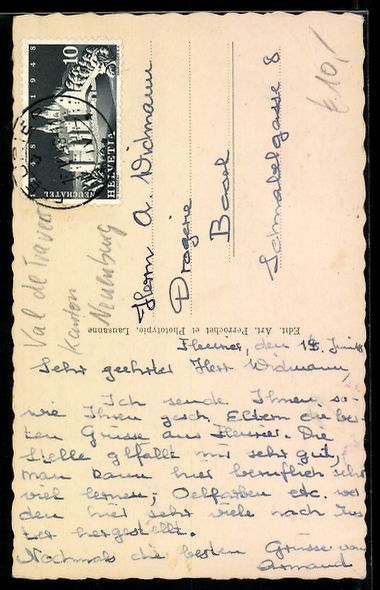 1848 1948
10
NEUCHATEL
HELVETIA
Herrn A. Widmann
Drogerie
Basel
Schnabelgasse 8
£10,/
Val de Travers
Kanton
Neuenburg
Edit. Art. Perrochet et Phototypie, Lausanne
Fleurier, den 19. Juni 48
Sehr geehrter Herr Widmann,
Ich sende Ihnen so-
wie Ihren gesch. Eltern die bes-
ten Grüsse aus Fleurier. Die
Stelle gefällt mir sehr gut,
man kann hier beruflich sehr
viel lernen; Oelfarben etc. wer
den hier sehr viele nach Mus
ter hergestellt.
Nochmals die besten Grüsse von
Armand